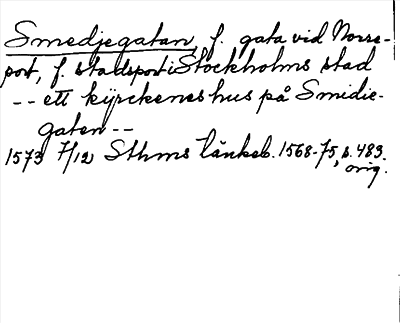 Smedjegatan, f. gata vid Norre-
port, f. stadsport i Stockholms stad
-- ett kyrckenes hus på Smidie-
gaten --
1573 7/12 Sthms tänkeb. 1568-75, s. 483.
orig.